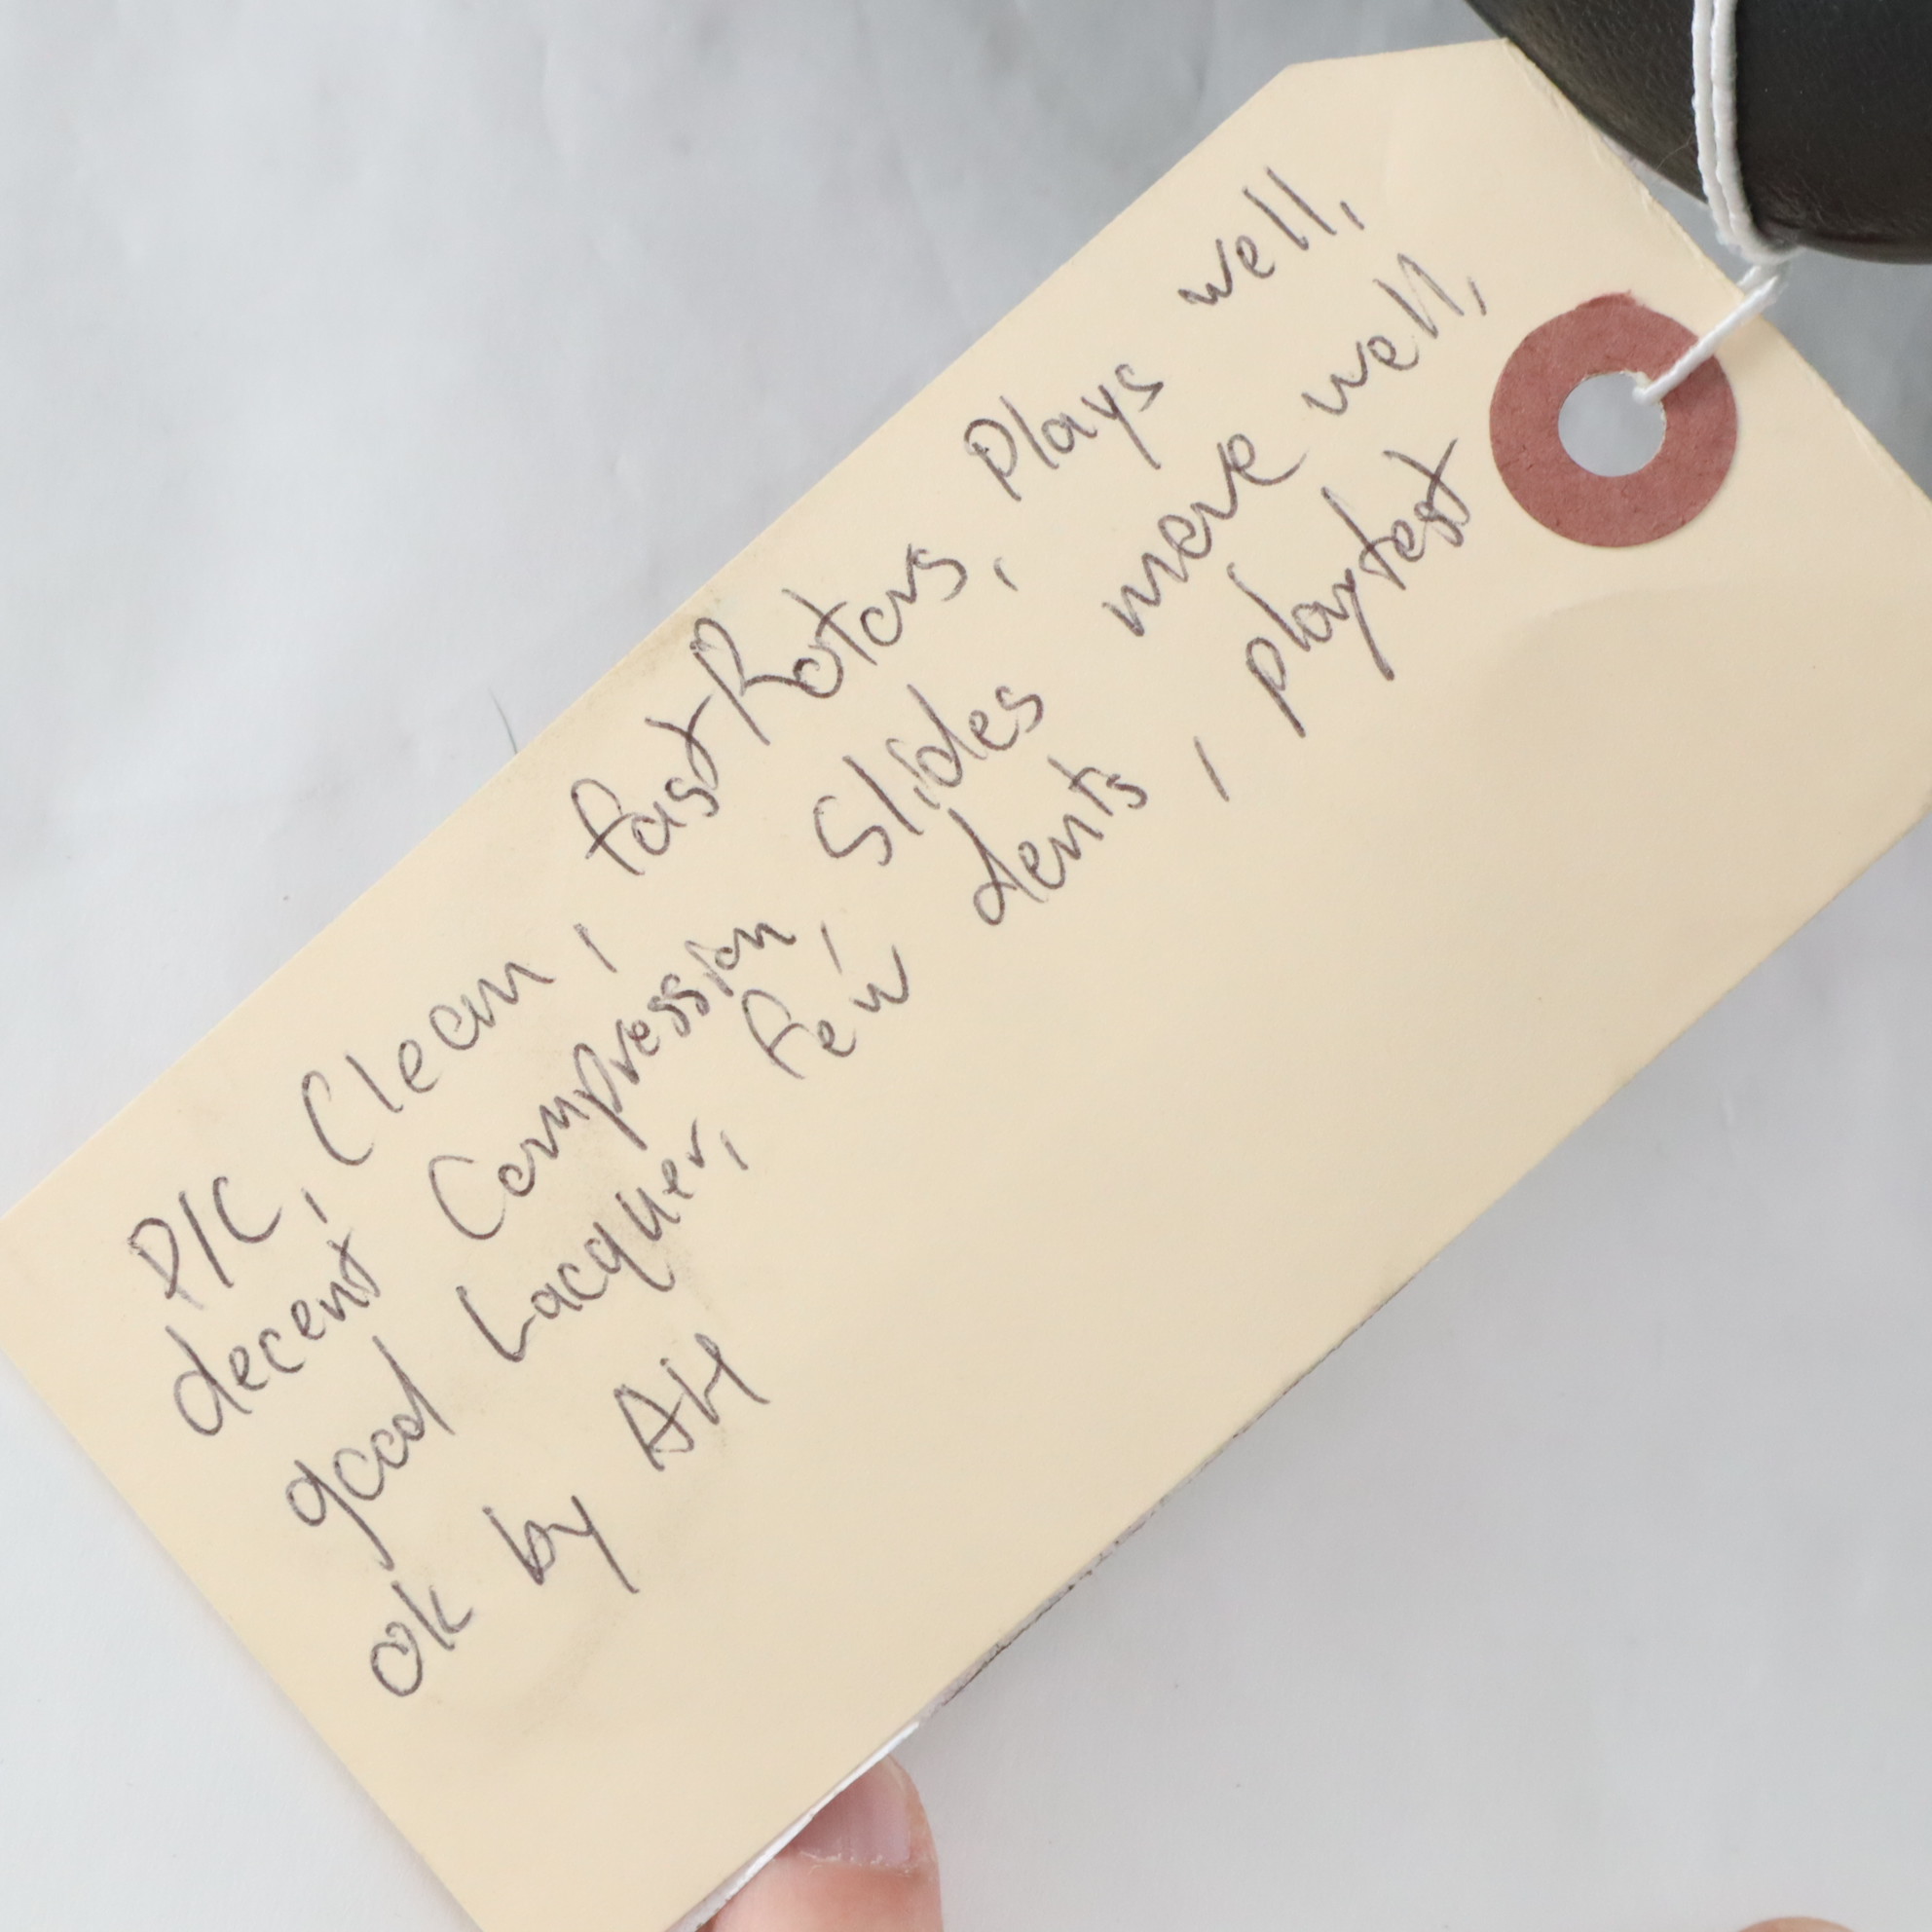 P/C, Clean, fast Rotors, Plays well,
decent Compression, Slides move well,
good Lacquer, few dents, playtest
ok by AH